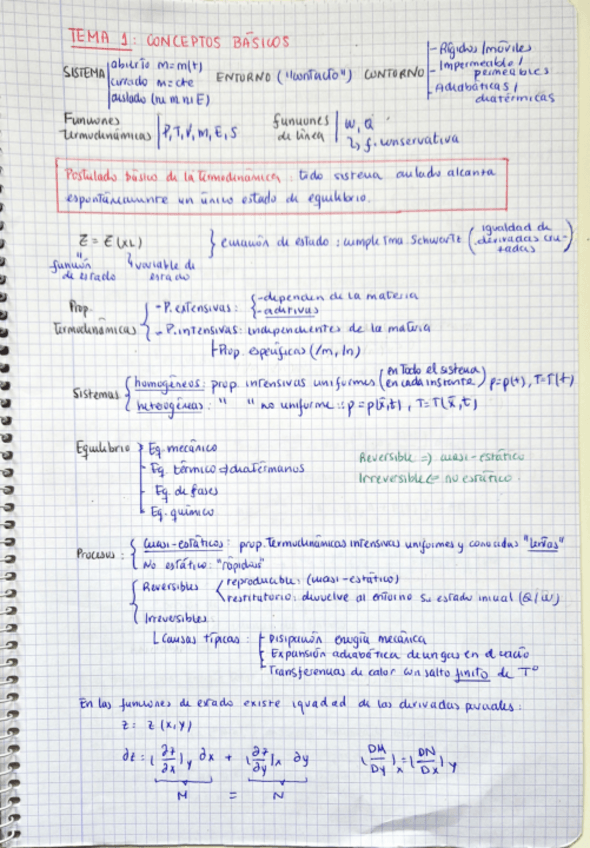 TEMA 1: CONCEPTOS BÁSICOS
SISTEMA abierto m=m(t)
cerrado m=cte
aislado (ni m ni E)
ENTORNO ("contacto")
CONTORNO - Rígidos/móviles
- Impermeable/permeables
- Adiabáticas/diatérmicas
Funciones termodinámicas P,T,V,m,E,S
funciones de línea W,Q
↳ f. conservativa
Postulado básico de la termodinámica: todo sistema aislado alcanza
espontáneamente un único estado de equilibrio.
ecuación de estado: cumple Tma. Schwartz (igualdad de derivadas cruzadas)
función de estado
variable de estado
Prop. Termodinámicas
- P. extensivas: -dependen de la materia
-aditivas
- P. intensivas: independientes de la materia
Prop. específicas (/m, /n)
Sistemas
homogéneos: prop. intensivas uniformes (en todo el sistema en cada instante) p=p(t), T=T(t)
heterogéneas: " " no uniforme: p=p(x̄,t), T=T(x̄,t)
Equilibrio Eq. mecánico
Eq. térmico → diatérmanos
Eq. de fases
Eq. químico
Reversible => cuasi-estático
Irreversible <= no estático.
Procesos:
cuasi-estáticos: prop. Termodinámicas intensivas uniformes y conocidas "lentas"
No estático: "rápidas"
Reversibles reproducible: (cuasi-estático)
restitutorio: devuelve al entorno su estado inicial (Q/W)
Irreversibles
Causas típicas: Disipación energía mecánica
Expansión adiabática de un gas en el vacío
Transferencias de calor con salto finito de Tº
En las funciones de estado existe igualdad de las derivadas parciales:
z = z (x,y)
∂z = (∂z/∂x)y ∂x + (∂z/∂y)x ∂y (DM/Dy)x = (DN/Dx)y
M = N